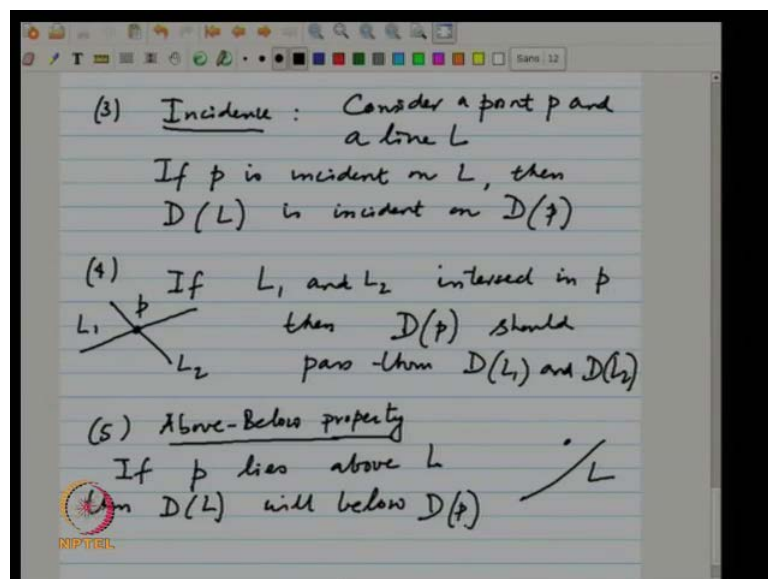 Sans 12
(3) Incidence : Consider a point p and
a line L
If p is incident on L, then
D(L) is incident on D(p)
(4) If L₁ and L₂ intersect in p
then D(p) should
pass D(L₁) and D(L₂)
p
L₁
L₂
(5) Above-Below property
If p lies above L
then D(L) will below D(p)
L
NPTEL